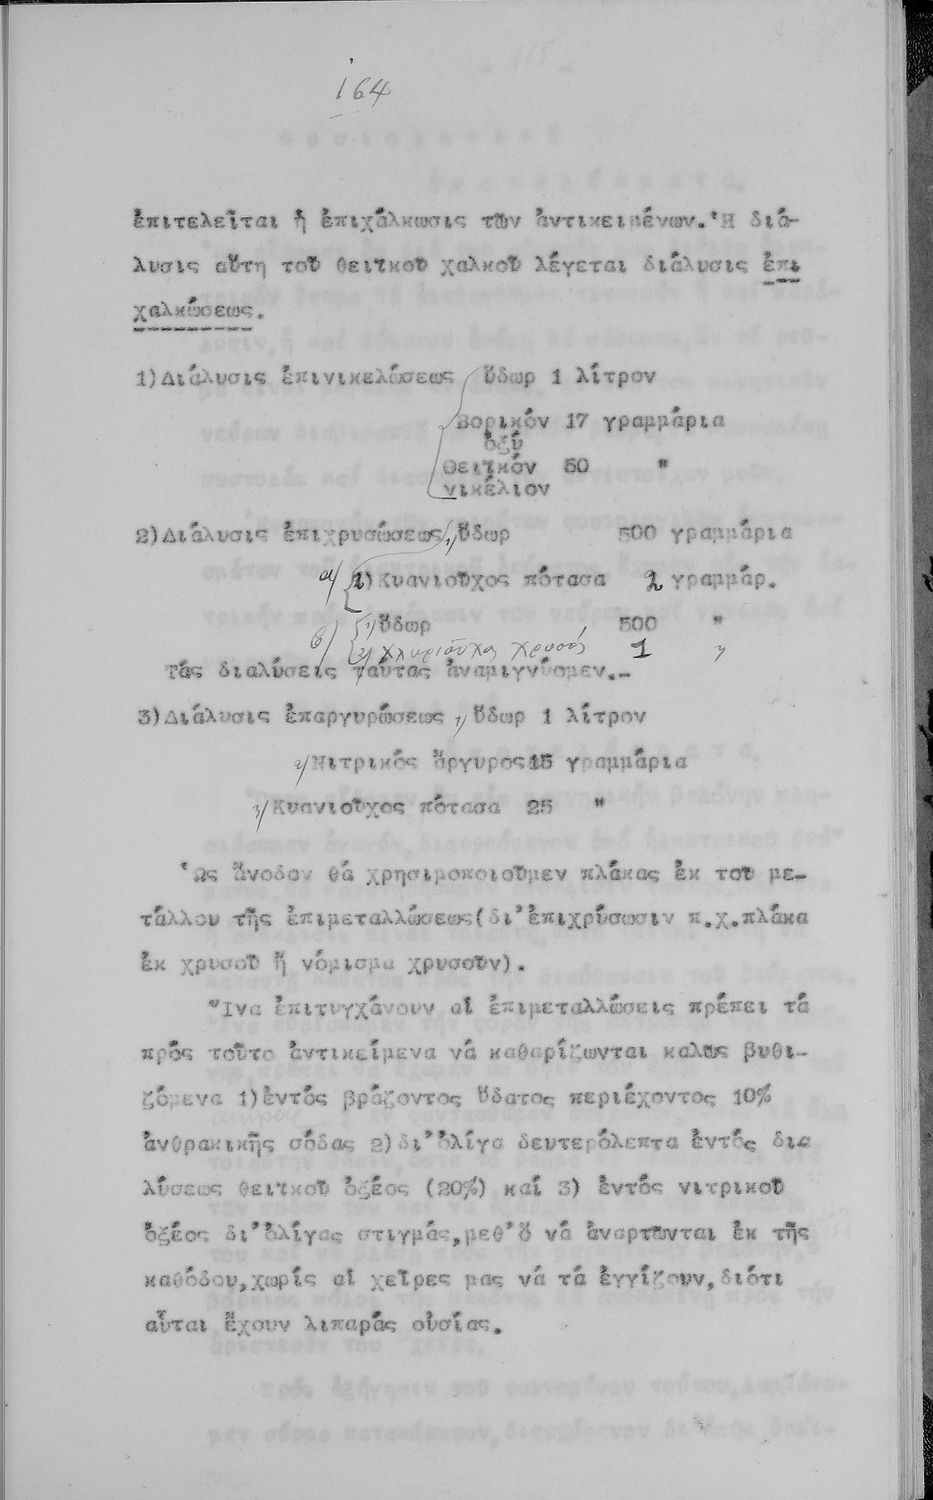 164
ἐπιτελεῖται ἡ ἐπιχάλκωσις τῶν ἀντικειμένων. Ἡ διά-
λυσις αὕτη τοῦ θειϊκοῦ χαλκοῦ λέγεται διάλυσις ἐπι
χαλκώσεως.
1)Διάλυσις ἐπινικελώσεως ὕδωρ 1 λίτρον
Βορικόν 17 γραμμάρια
ὀξύ
Θειϊκόν 50 "
νικέλιον
2)Διάλυσις ἐπιχρυσώσεως 1) ὕδωρ 500 γραμμάρια
α) 2) Κυανιοῦχος πότασα 2 γραμμάρ.
β) 1) ὕδωρ 500 "
2) Χλωριοῦχος χρυσός 1 "
Τάς διαλύσεις ταύτας ἀναμιγνύομεν.-
3)Διάλυσις ἐπαργυρώσεως 1) ὕδωρ 1 λίτρον
2) Νιτρικός ἄργυρος 15 γραμμάρια
3) Κυανιοῦχος πότασα 25 "
Ὡς ἄνοδον θά χρησιμοποιοῦμεν πλάκας ἐκ τοῦ με-
τάλλου τῆς ἐπιμεταλλώσεως(δι' ἐπιχρύσωσιν π.χ.πλάκα
ἐκ χρυσοῦ ἤ νόμισμα χρυσοῦν).
Ἵνα ἐπιτυγχάνουν αἱ ἐπιμεταλλώσεις πρέπει τά
πρός τοῦτο ἀντικείμενα νά καθαρίζωνται καλῶς βυθι-
ζόμενα 1)ἐντός βράζοντος ὕδατος περιέχοντος 10%
ἀνθρακικῆς σόδας 2)δι' ὀλίγα δευτερόλεπτα ἐντός δια
λύσεως θειϊκοῦ ὀξέος (20%) καί 3) ἐντός νιτρικοῦ
ὀξέος δι' ὀλίγας στιγμάς,μεθ' ὅ νά ἀναρτῶνται ἐκ τῆς
καθόδου,χωρίς αἱ χεῖρες μας νά τά ἐγγίζουν,διότι
αὗται ἔχουν λιπαράς οὐσίας.